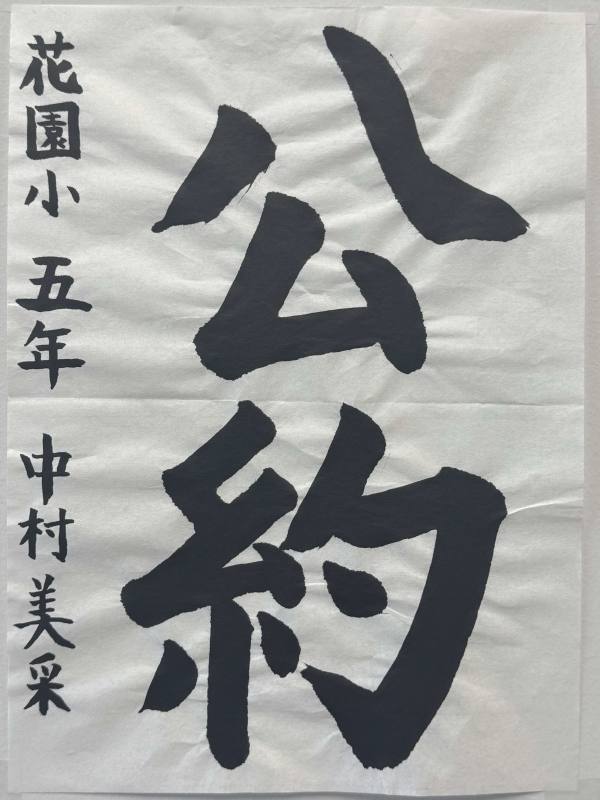 公約
花園小 五年 中村美采